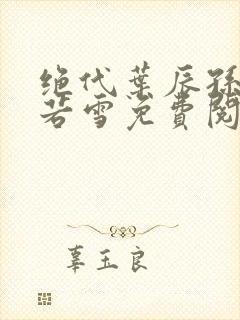 绝代叶辰孙
若雪免费阅
辜玉良